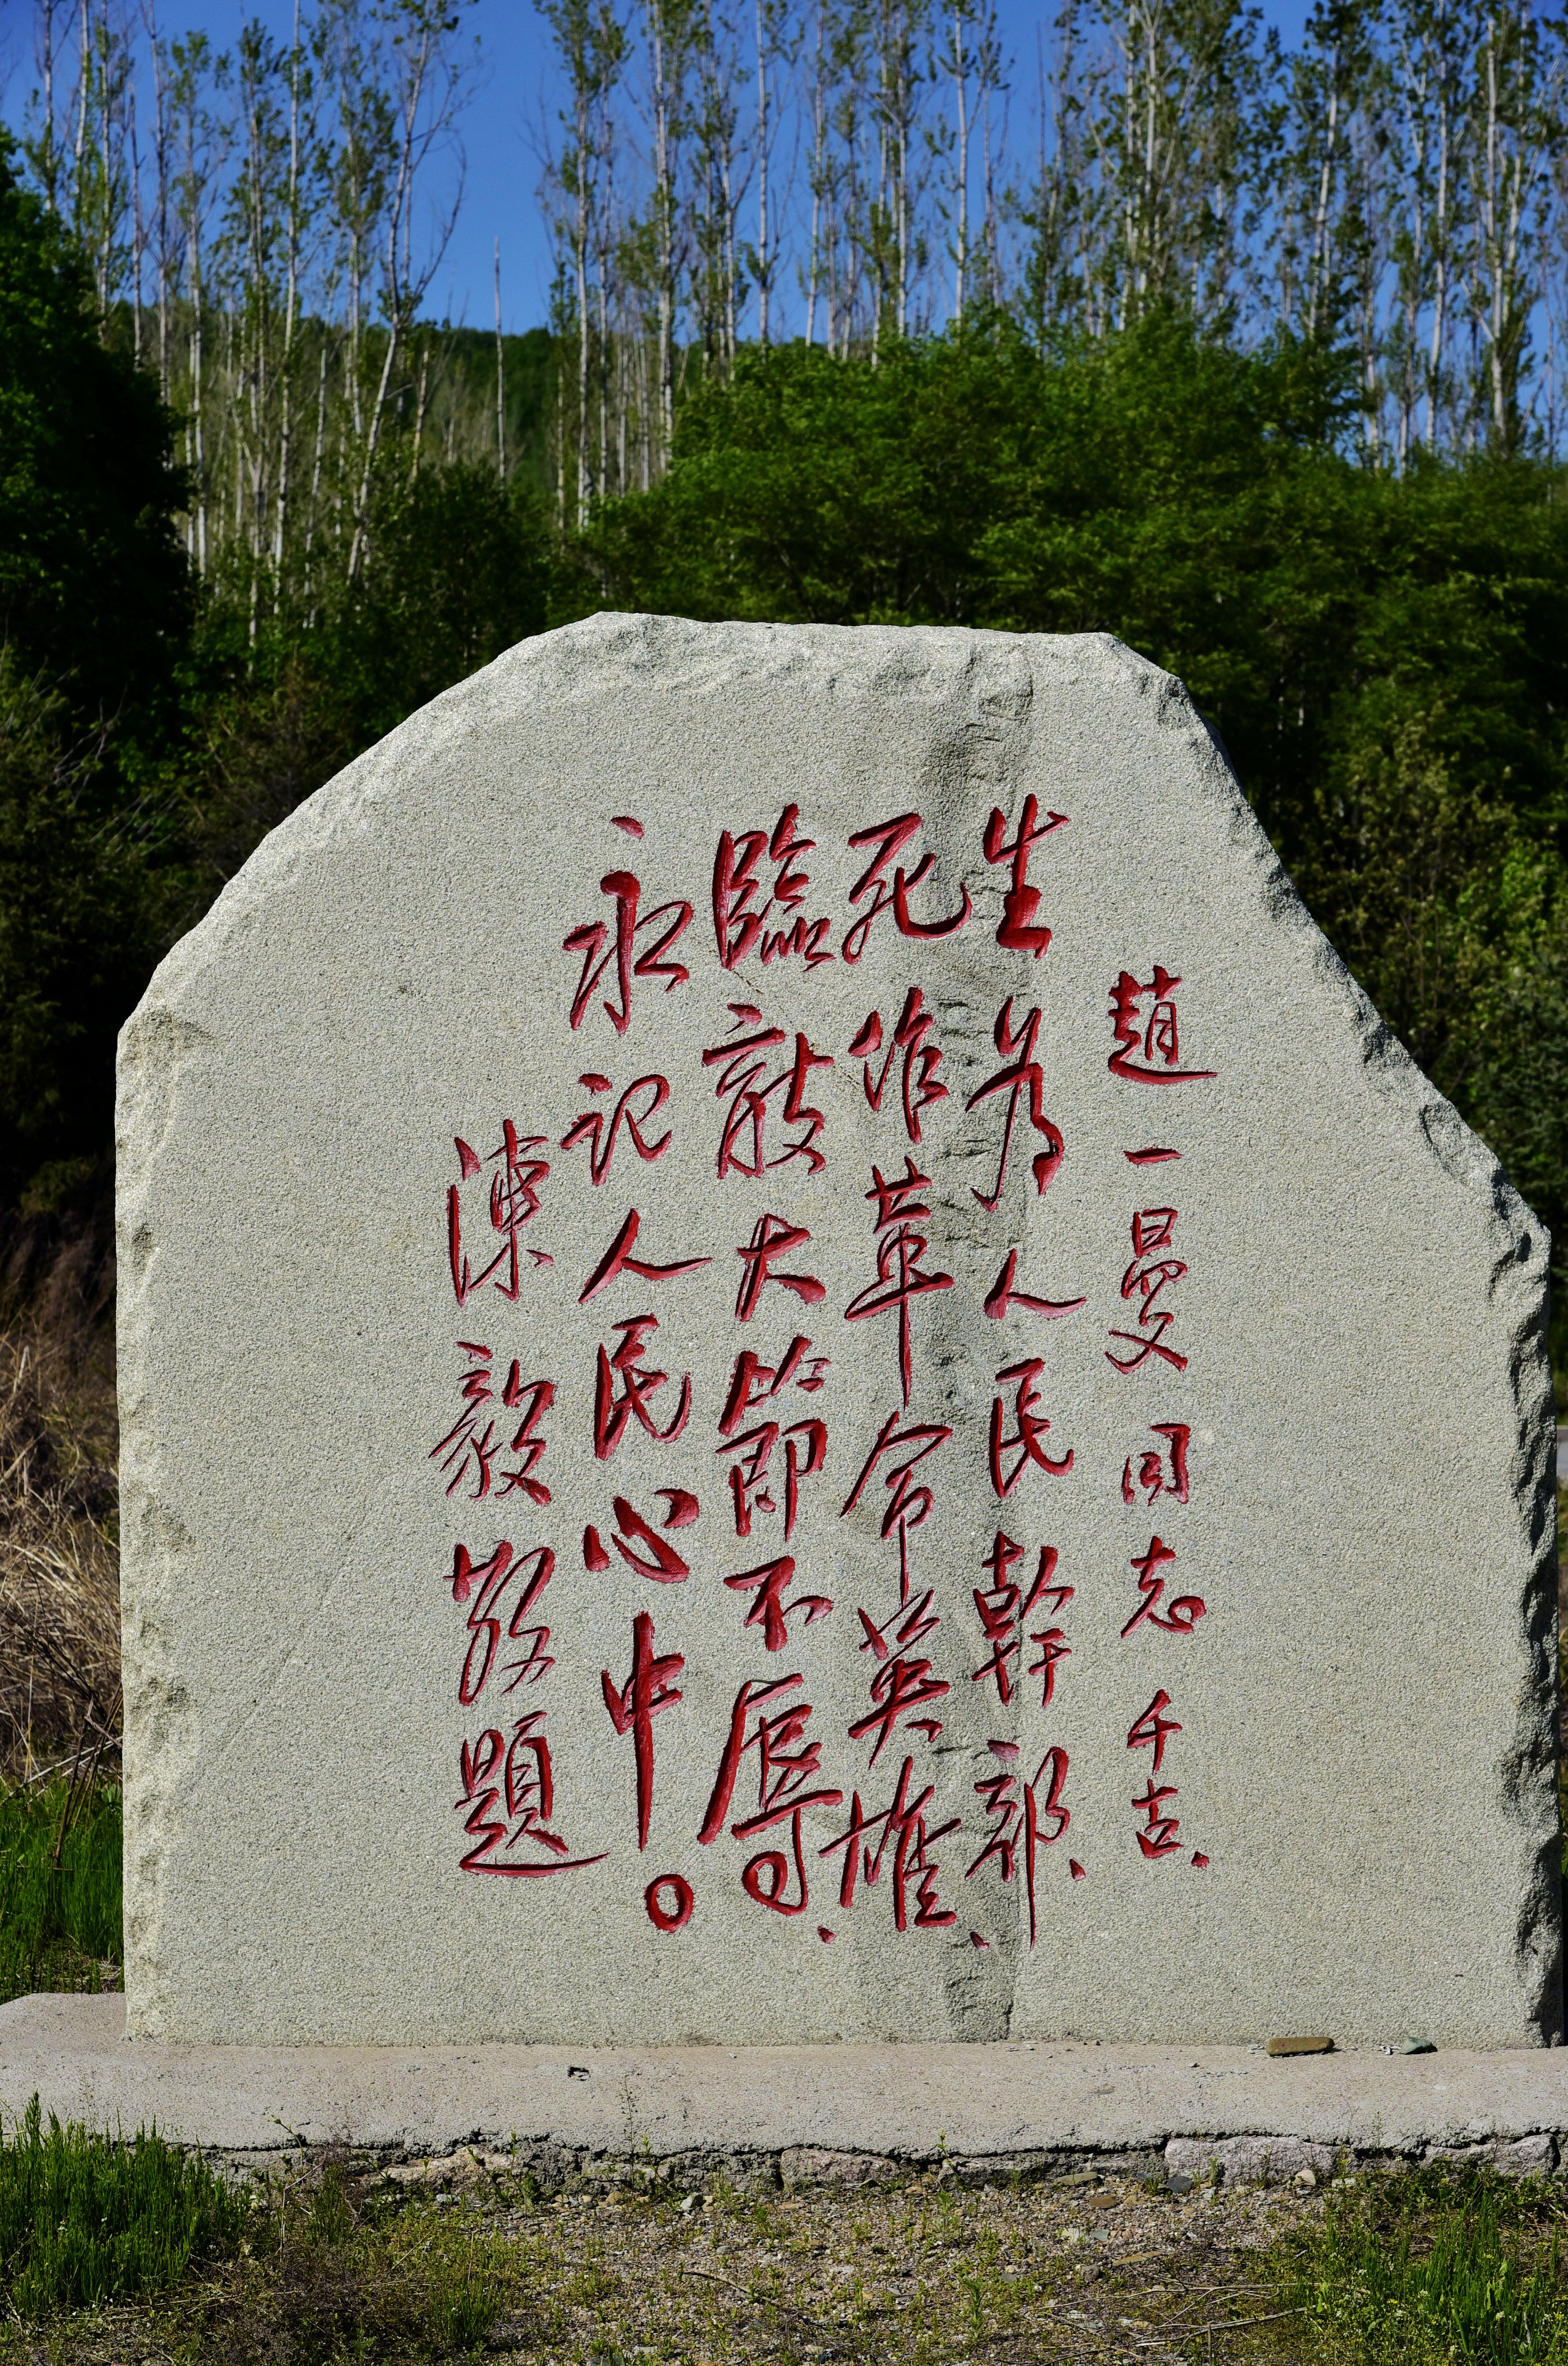 趙一曼同志千古、
生為人民幹部、
死作革命英雄、
臨敵大節不辱、
永記人民心中。
陳毅敬題